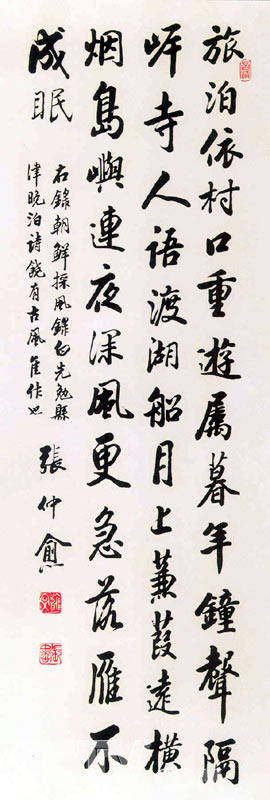 旅泊依村口重遊屬暮年鐘聲隔
岸寺人語渡湖船月上蒹葭遠橫
烟島嶼連夜深風更急落雁不
成眠
右錄朝鮮採風錄白光勉縣
津晚泊詩饒有古風佳作也
張仲愈